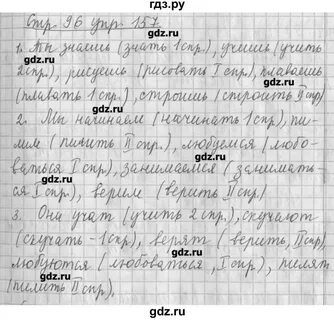 Стр. 96 упр. 157
1. Ты знаешь (знать 1 спр.), учишь (учить
2 спр.), рисуешь (рисовать I спр.), плаваешь
(плавать 1 спр.), строишь (строить II спр)
2. Мы начинаем (начинать 1 спр), пи-
лим (пилить II спр.), любуемся (любо-
ваться I спр.), занимаемся (занимать-
ся I спр.), верим (верить II спр)
3. Они учат (учить 2 спр.), скучают
(скучать - 1 спр), верят (верить, II спр)
любуются (любоваться, I спр.), пилят
(пилить II спр).
gdz.ru
gdz.ru
gdz.ru
gdz.ru
gdz.ru
gdz.ru
gdz.ru
gdz.ru
gdz.ru
gdz.ru